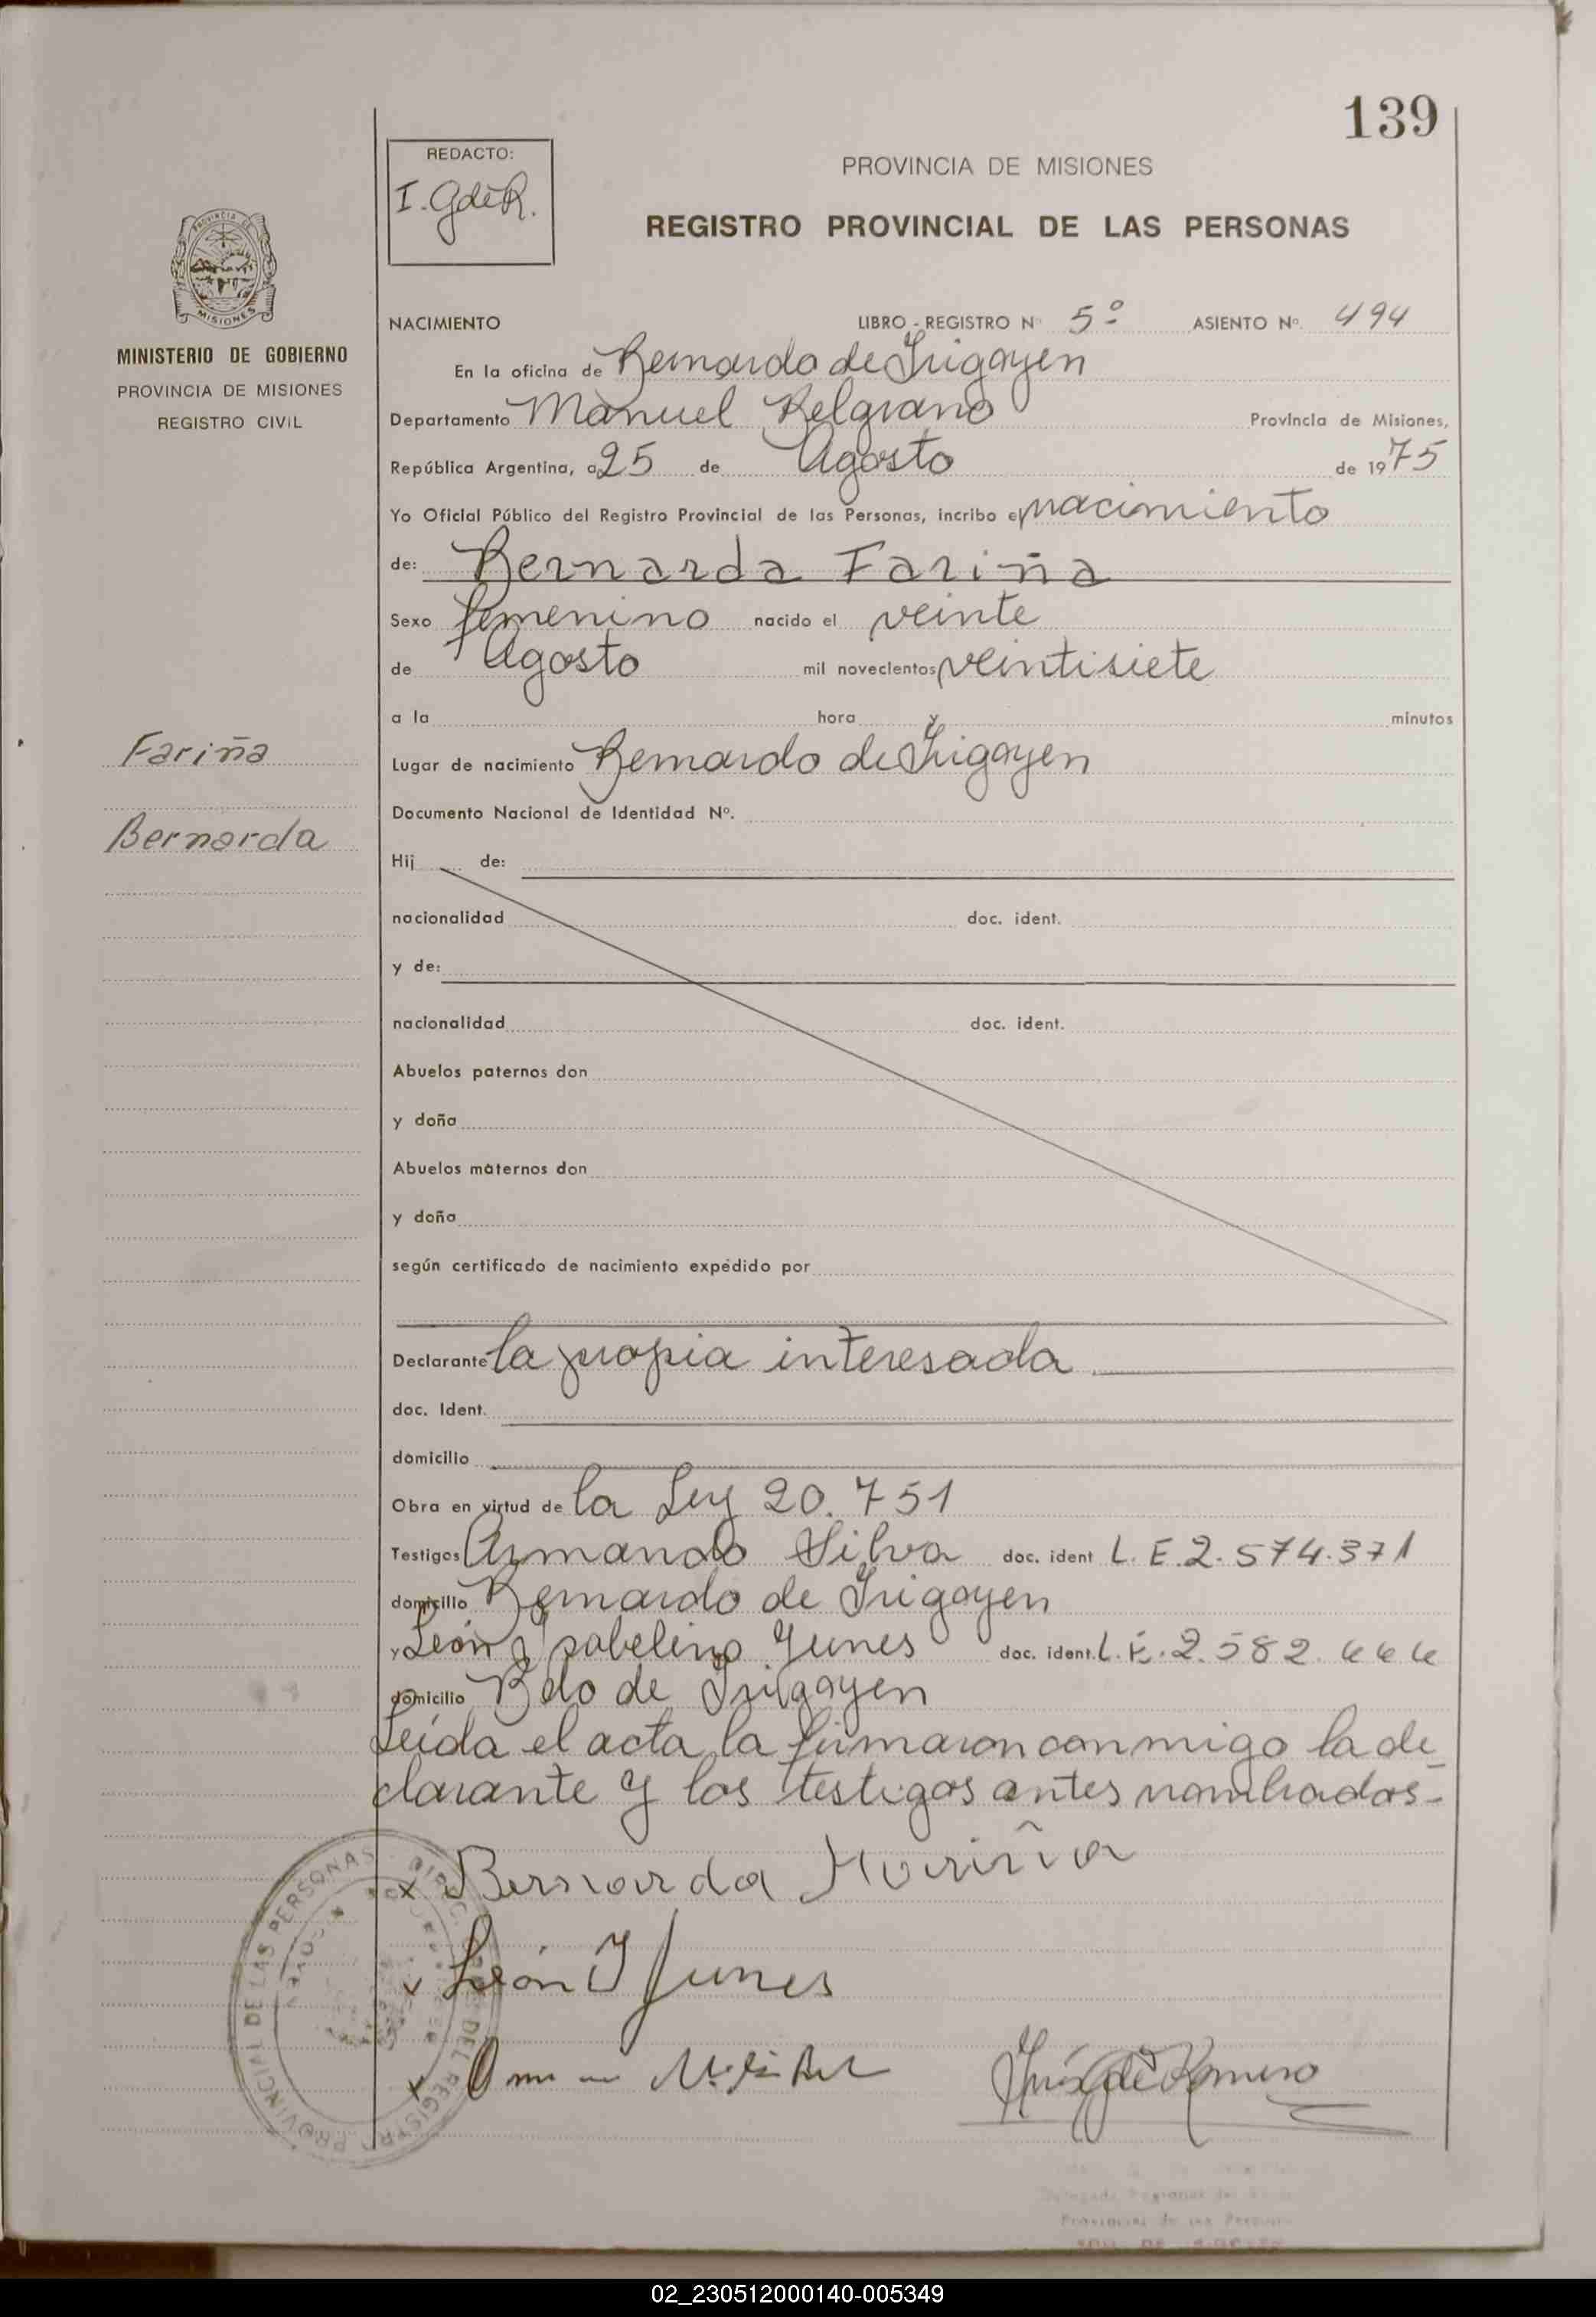 139
REDACTO:
I. GdeR.
PROVINCIA DE MISIONES
REGISTRO PROVINCIAL DE LAS PERSONAS
MISIONES
MINISTERIO DE GOBIERNO
PROVINCIA DE MISIONES
REGISTRO CIVIL
NACIMIENTO LIBRO - REGISTRO Nº 5º ASIENTO Nº. 494
En la oficina de Bernardo de Irigoyen
Departamento Manuel Belgrano Provincia de Misiones,
República Argentina, a 25 de Agosto de 1975
Yo Oficial Público del Registro Provincial de las Personas, incribo el nacimiento
de: Bernarda Fariña
Sexo femenino nacido el veinte
de Agosto mil novecientos veintisiete
a la hora y minutos
Fariña
Bernarda
Lugar de nacimiento Bernardo de Irigoyen
Documento Nacional de Identidad Nº.
Hij de:
nacionalidad doc. ident.
y de:
nacionalidad doc. ident.
Abuelos paternos don
y doña
Abuelos maternos don
y doña
según certificado de nacimiento expedido por
Declarante la propia interesada
doc. Ident.
domicilio
Obra en virtud de la Ley 20.751
Testigos Armando Silva doc. ident L.E.2.574.371
domicilio Bernardo de Irigoyen
y León Ysabelino Yunes doc. ident. L.E.2.582.444
domicilio Bdo de Irigoyen
Leída el acta la firmaron conmigo la de
clarante y los testigos antes nombrados-
x Bernarda Fariña
x León Y Yunes
x
PROVINCIAL DE LAS PERSONAS
DEL REGISTRO
Provincial de las Personas
02_230512000140-005349